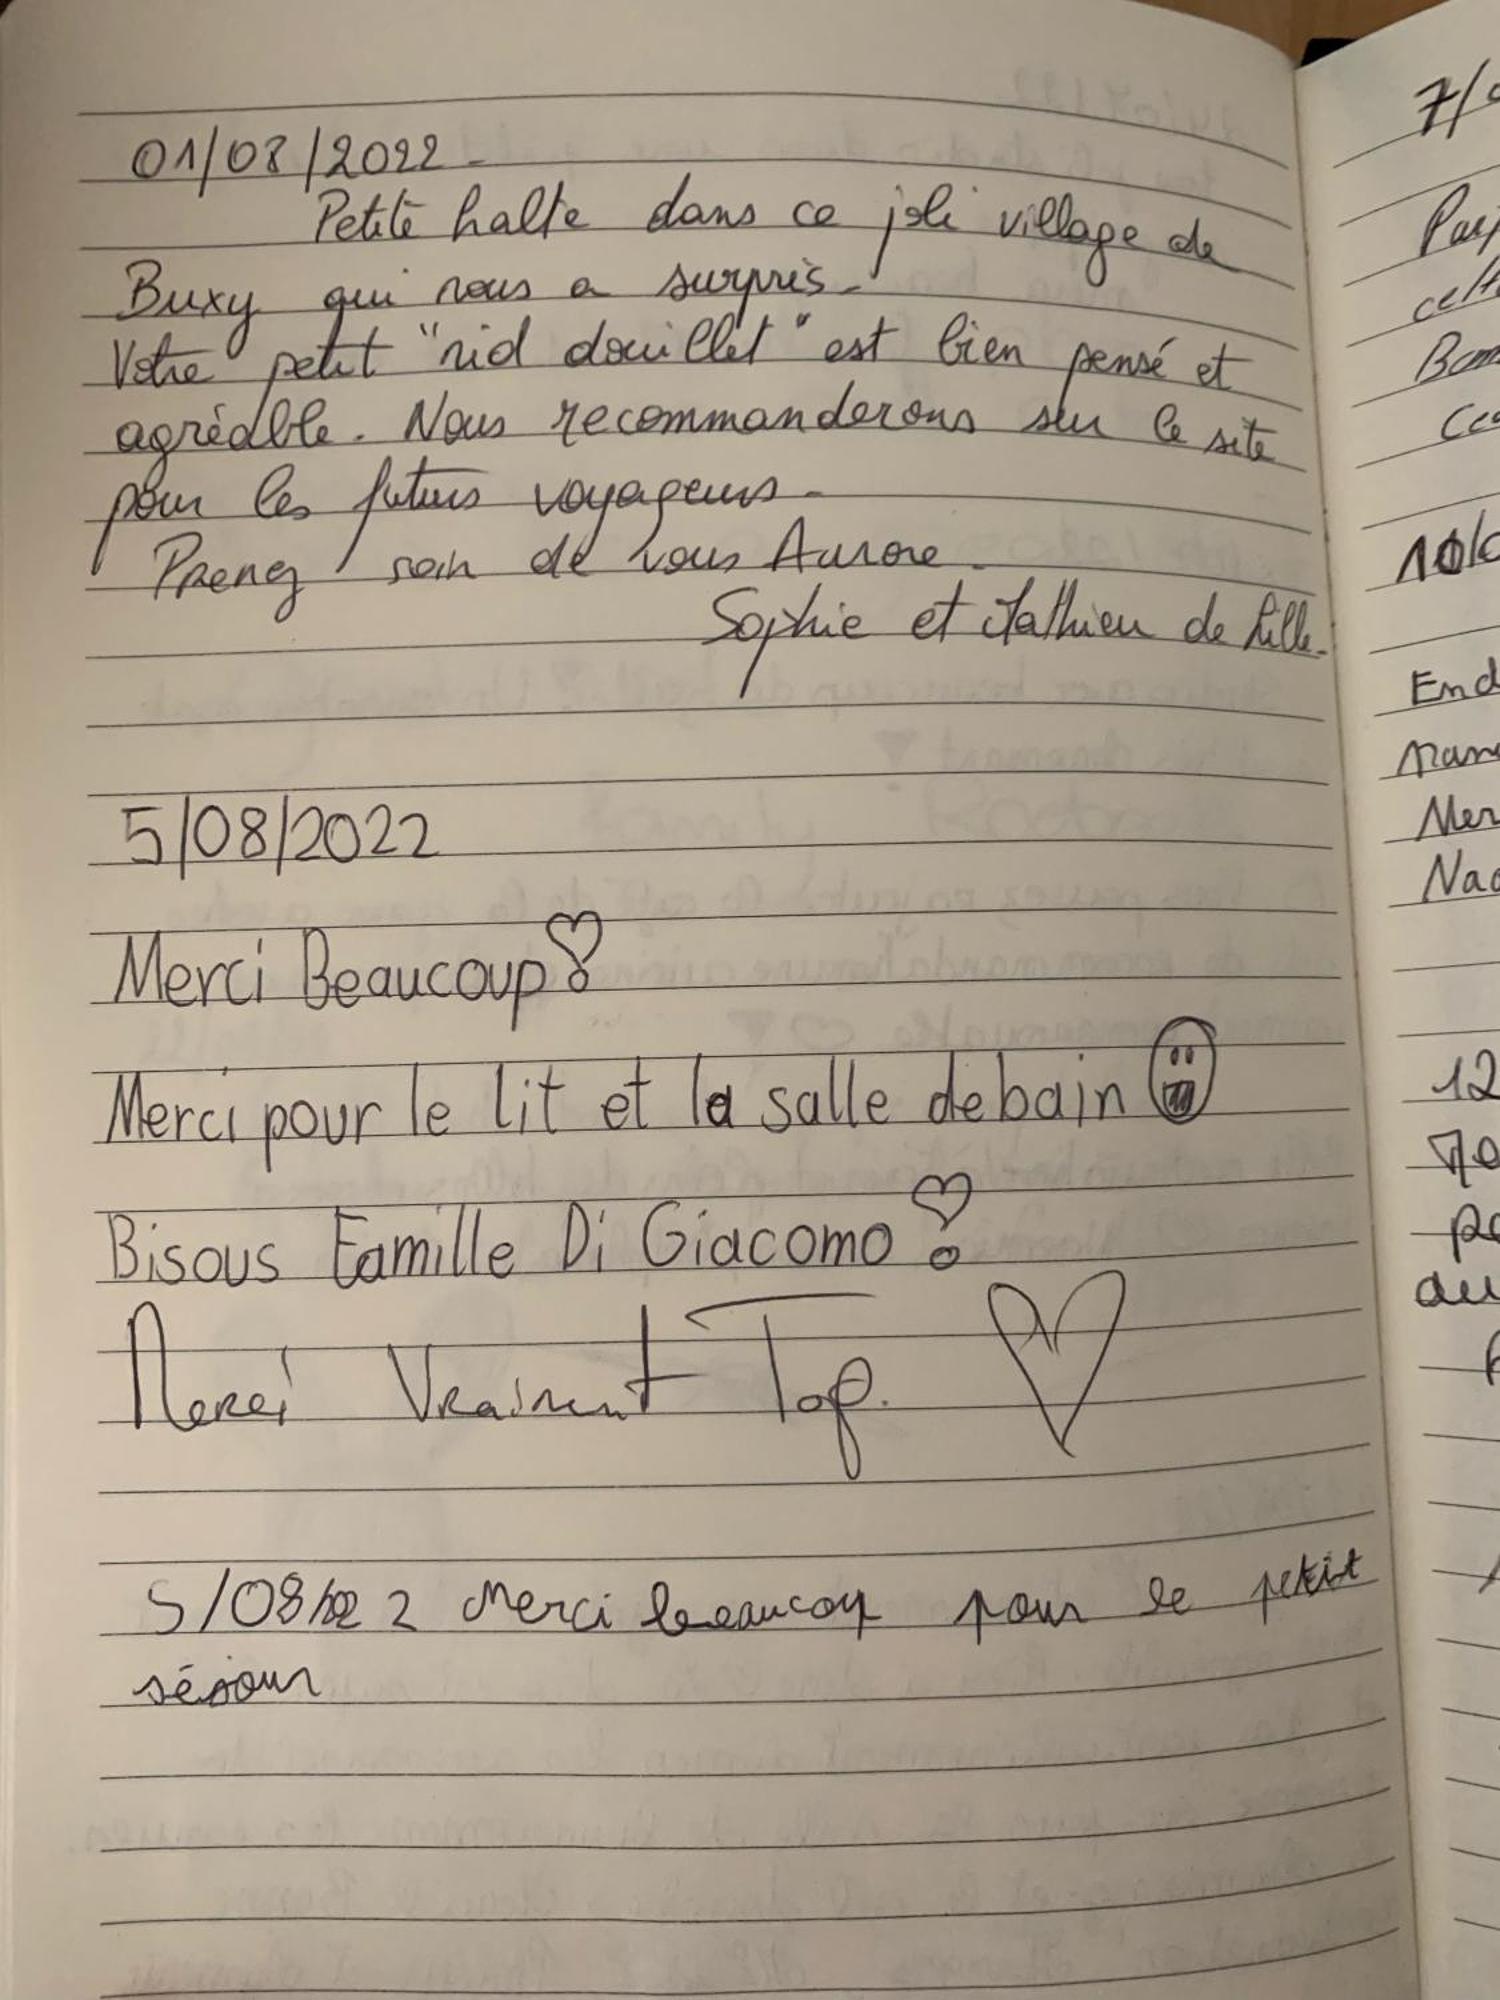 01/08/2022.
Petite halte dans ce joli village de
Buxy qui nous a surpris.
Votre petit "nid douillet" est bien pensé et
agréable. Nous recommanderons sur le site
pour les futurs voyageurs.
Prenez soin de vous Aurore.
Sophie et Mathieu de Lille.
5/08/2022
Merci Beaucoup
Merci pour le lit et la salle de bain
Bisous Famille Di Giacomo
Merci Vraiment Top.
5/08/2022 Merci beaucoup pour le petit
séjour
7/
10/
End
Mer
12